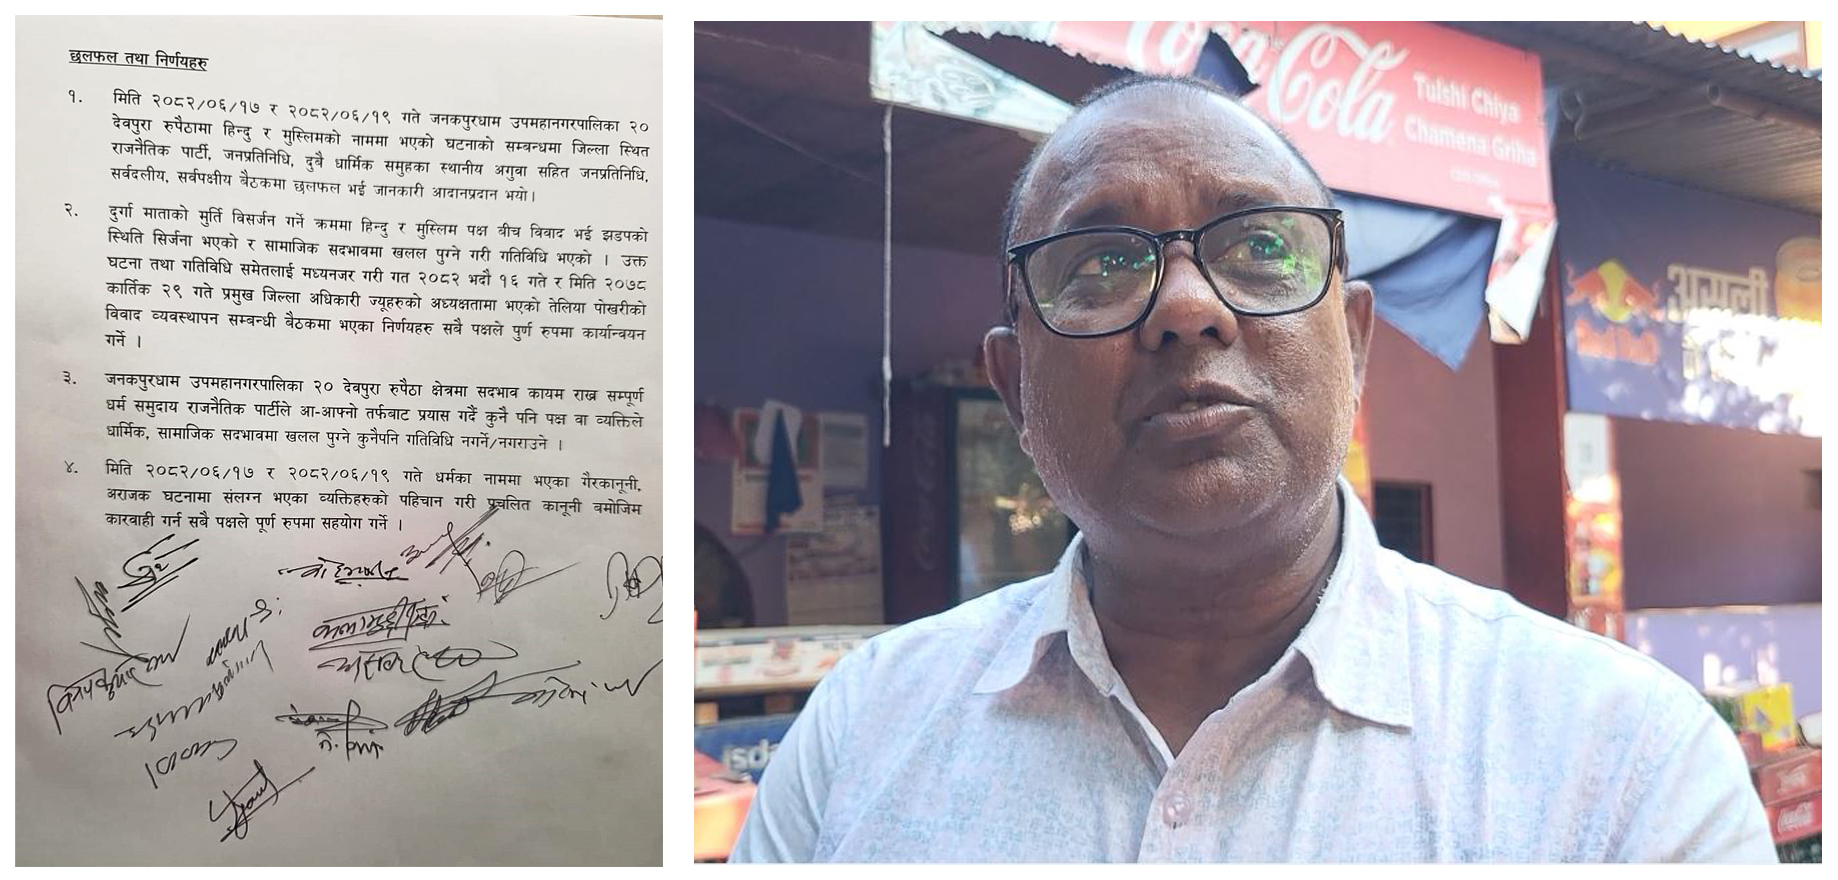 छलफल तथा निर्णयहरु
१. मिति २०८२/०६/१७ र २०८२/०६/१९ गते जनकपुरधाम उपमहानगरपालिका २०
देवपुरा रुपैठामा हिन्दु र मुस्लिमको नाममा भएको घटनाको सम्बन्धमा जिल्ला स्थित
राजनैतिक पार्टी, जनप्रतिनिधि, दुवै धार्मिक समुहका स्थानीय अगुवा सहित जनप्रतिनिधि,
सर्वदलीय, सर्वपक्षीय बैठकमा छलफल भई जानकारी आदानप्रदान भयो।
२. दुर्गा माताको मुर्ति विसर्जन गर्ने क्रममा हिन्दु र मुस्लिम पक्ष बीच विवाद भई झडपको
स्थिति सिर्जना भएको र सामाजिक सदभावमा खलल पुग्ने गरी गतिविधि भएको । उक्त
घटना तथा गतिविधि समेतलाई मध्यनजर गरी गत २०८२ भदौ १६ गते र मिति २०७८
कार्तिक २९ गते प्रमुख जिल्ला अधिकारी ज्यूहरुको अध्यक्षतामा भएको तेलिया पोखरीको
विवाद व्यवस्थापन सम्बन्धी बैठकमा भएका निर्णयहरु सबै पक्षले पुर्ण रुपमा कार्यान्वयन
गर्ने ।
३. जनकपुरधाम उपमहानगरपालिका २० देवपुरा रुपैठा क्षेत्रमा सदभाव कायम राख्न सम्पूर्ण
धर्म समुदाय राजनैतिक पार्टीले आ-आफ्नो तर्फबाट प्रयास गर्दै कुनै पनि पक्ष वा व्यक्तिले
धार्मिक, सामाजिक सदभावमा खलल पुग्ने कुनैपनि गतिविधि नगर्ने/नगराउने ।
४. मिति २०८२/०६/१७ र २०८२/०६/१९ गते धर्मका नाममा भएका गैरकानूनी,
अराजक घटनामा संलग्न भएका व्यक्तिहरुको पहिचान गरी प्रचलित कानूनी बमोजिम
कारवाही गर्न सबै पक्षले पूर्ण रुपमा सहयोग गर्ने ।
Coca Cola
Tulshi Chiya
Chamena Griha
असली